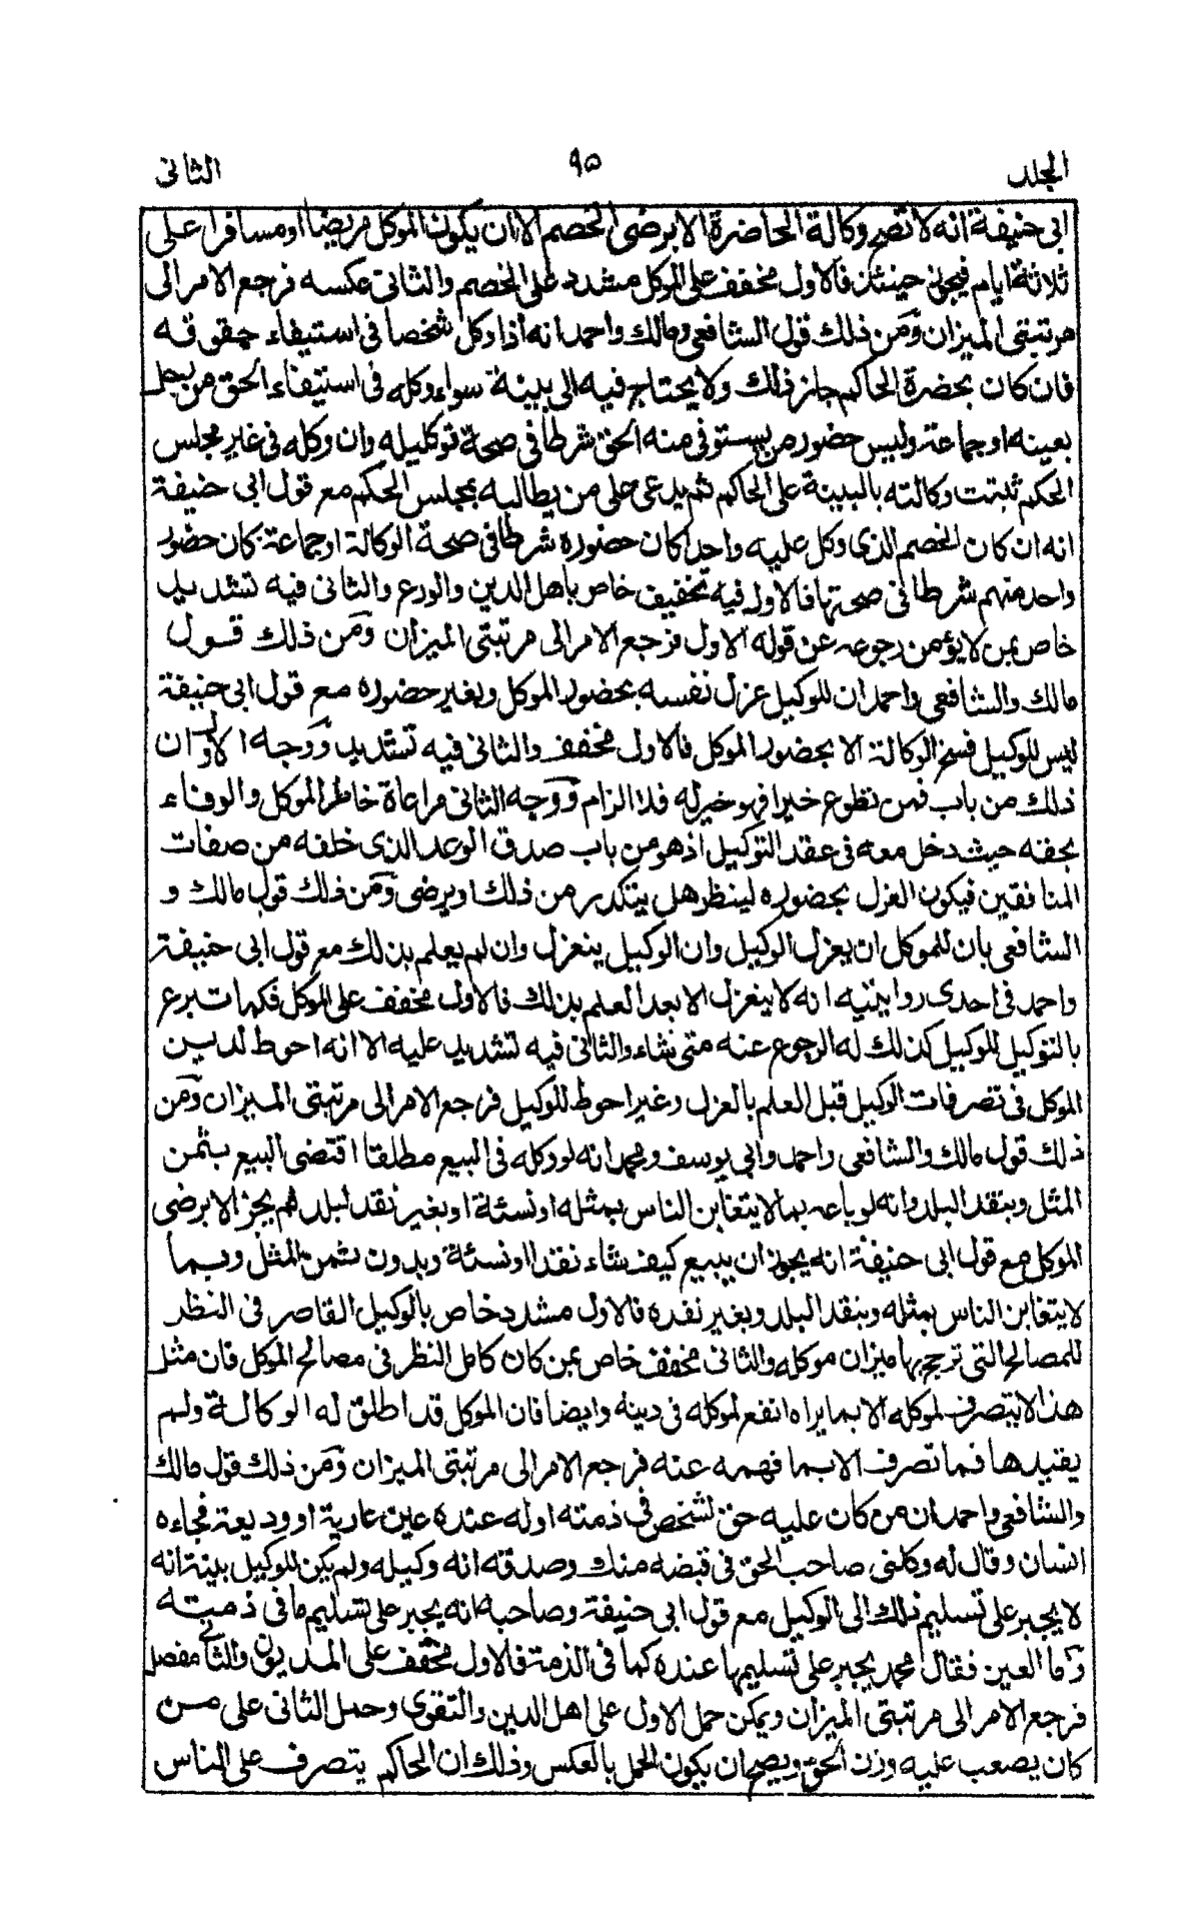 المجلد ٩٥ الثاني
ابى حنيفة انه لا تصح وكالة الحاضرة الا برضى الخصم الا ان يكون الموكل مريضا او مسافرا على
ثلاثة ايام فيجوز حينئذ فالاول مخفف على الموكل مشدد على الخصم والثانى عكسه فرجع الامر الى
مرتبتى الميزان ومن ذلك قول الشافعى ومالك واحمد انه اذا وكل شخصا فى استيفاء حقوقه
فان كان بحضرة الحاكم جاز ذلك ولا يحتاج فيه الى بينة سواء وكله فى استيفاء الحق من رجل
بعينه او جماعة وليس حضور من يستوفى منه الحق شرطا فى صحة توكليله وان وكله فى غير مجلس
الحكم ثبتت وكالته بالبينة على الحاكم ثم يدعى على من يطالبه بمجلس الحكم مع قول ابى حنيفة
انه ان كان الخصم الذى وكل عليه واحدا كان حضوره شرطا فى صحة الوكالة او جماعة كان حضور
واحد منهم شرطا فى صحتها فالاول فيه تخفيف خاص باهل الدين والورع والثانى فيه تشديد
خاص بمن لا يؤمن رجوعه عن قوله الاول فرجع الامر الى مرتبتى الميزان ومن ذلك قول
مالك والشافعى واحمد ان للوكيل عزل نفسه بحضور الموكل وبغير حضوره مع قول ابى حنيفة
ليس للوكيل فسخ الوكالة الا بحضور الموكل فالاول مخفف والثانى فيه تشديد ووجه الاول ان
ذلك من باب فمن تطوع خيرا فهو خير له فلا الزام ووجه الثانى مراعاة خاطر الموكل والوفاء
بحقه حيث دخل معه فى عقد التوكيل اذ هو من باب صدق الوعد الذى خلفه من صفات
المنافقين فيكون العزل بحضوره لينظر هل يتكدر من ذلك او يرضى ومن ذلك قول مالك و
الشافعى بان للموكل ان يعزل الوكيل وان الوكيل ينعزل وان لم يعلم بذلك مع قول ابى حنيفة
واحمد فى احدى روايتيه انه لا ينعزل الا بعد العلم بذلك فالاول مخفف على الموكل فكما تبرع
بالتوكيل للوكيل كذلك له الرجوع عنه متى شاء والثانى فيه تشديد عليه الا انه احوط لدين
الموكل فى تصرفات الوكيل قبل العلم بالعزل وغير احوط للوكيل فرجع الامر الى مرتبتى الميزان ومن
ذلك قول مالك والشافعى واحمد وابى يوسف ومحمد انه لو وكله فى البيع مطلقا اقتضى البيع بثمن
المثل وبنقد البلد وانه لو باعه بما لا يتغابن الناس بمثله او نسئة او بغير نقد البلد لم يجز الا برضى
الموكل مع قول ابى حنيفة انه يجوز ان يبيع كيف شاء نقدا او نسئة وبدون ثمن المثل وبما
لا يتغابن الناس بمثله وبنقد البلد وبغير نقده فالاول مشدد خاص بالوكيل القاصر فى النظر
للمصالح التى ترجح بها ميزان موكله والثانى مخفف خاص بمن كان كامل النظر فى مصالح الموكل فان مثل
هذا لا يتصرف لموكله الا بما يراه انفع لموكله فى دينه وايضا فان الموكل قد اطلق له الوكالة ولم
يقيدها فما تصرف الا بما فهمه عنه فرجع الامر الى مرتبتى الميزان ومن ذلك قول مالك
والشافعى واحمد ان من كان عليه حق لشخص فى ذمته او له عنده عين عارية او وديعة فجاءه
انسان وقال له وكلنى صاحب الحق فى قبضه منك وصدقه انه وكيله ولم يكن للوكيل بينة انه
لا يجبر على تسليم ذلك الى الوكيل مع قول ابى حنيفة وصاحبه انه يجبر على تسليم ما فى ذمته
واما العين فقال محمد يجبر على تسليمها عنده كما فى الذمة فالاول مخفف على المديون والثانى مفصل
فرجع الامر الى مرتبتى الميزان ويمكن حمل الاول على اهل الدين والتقوى وحمل الثانى على من
كان يصعب عليه وزن الحق ويصح ان يكون الحمل بالعكس وذلك ان الحاكم يتصرف على الناس